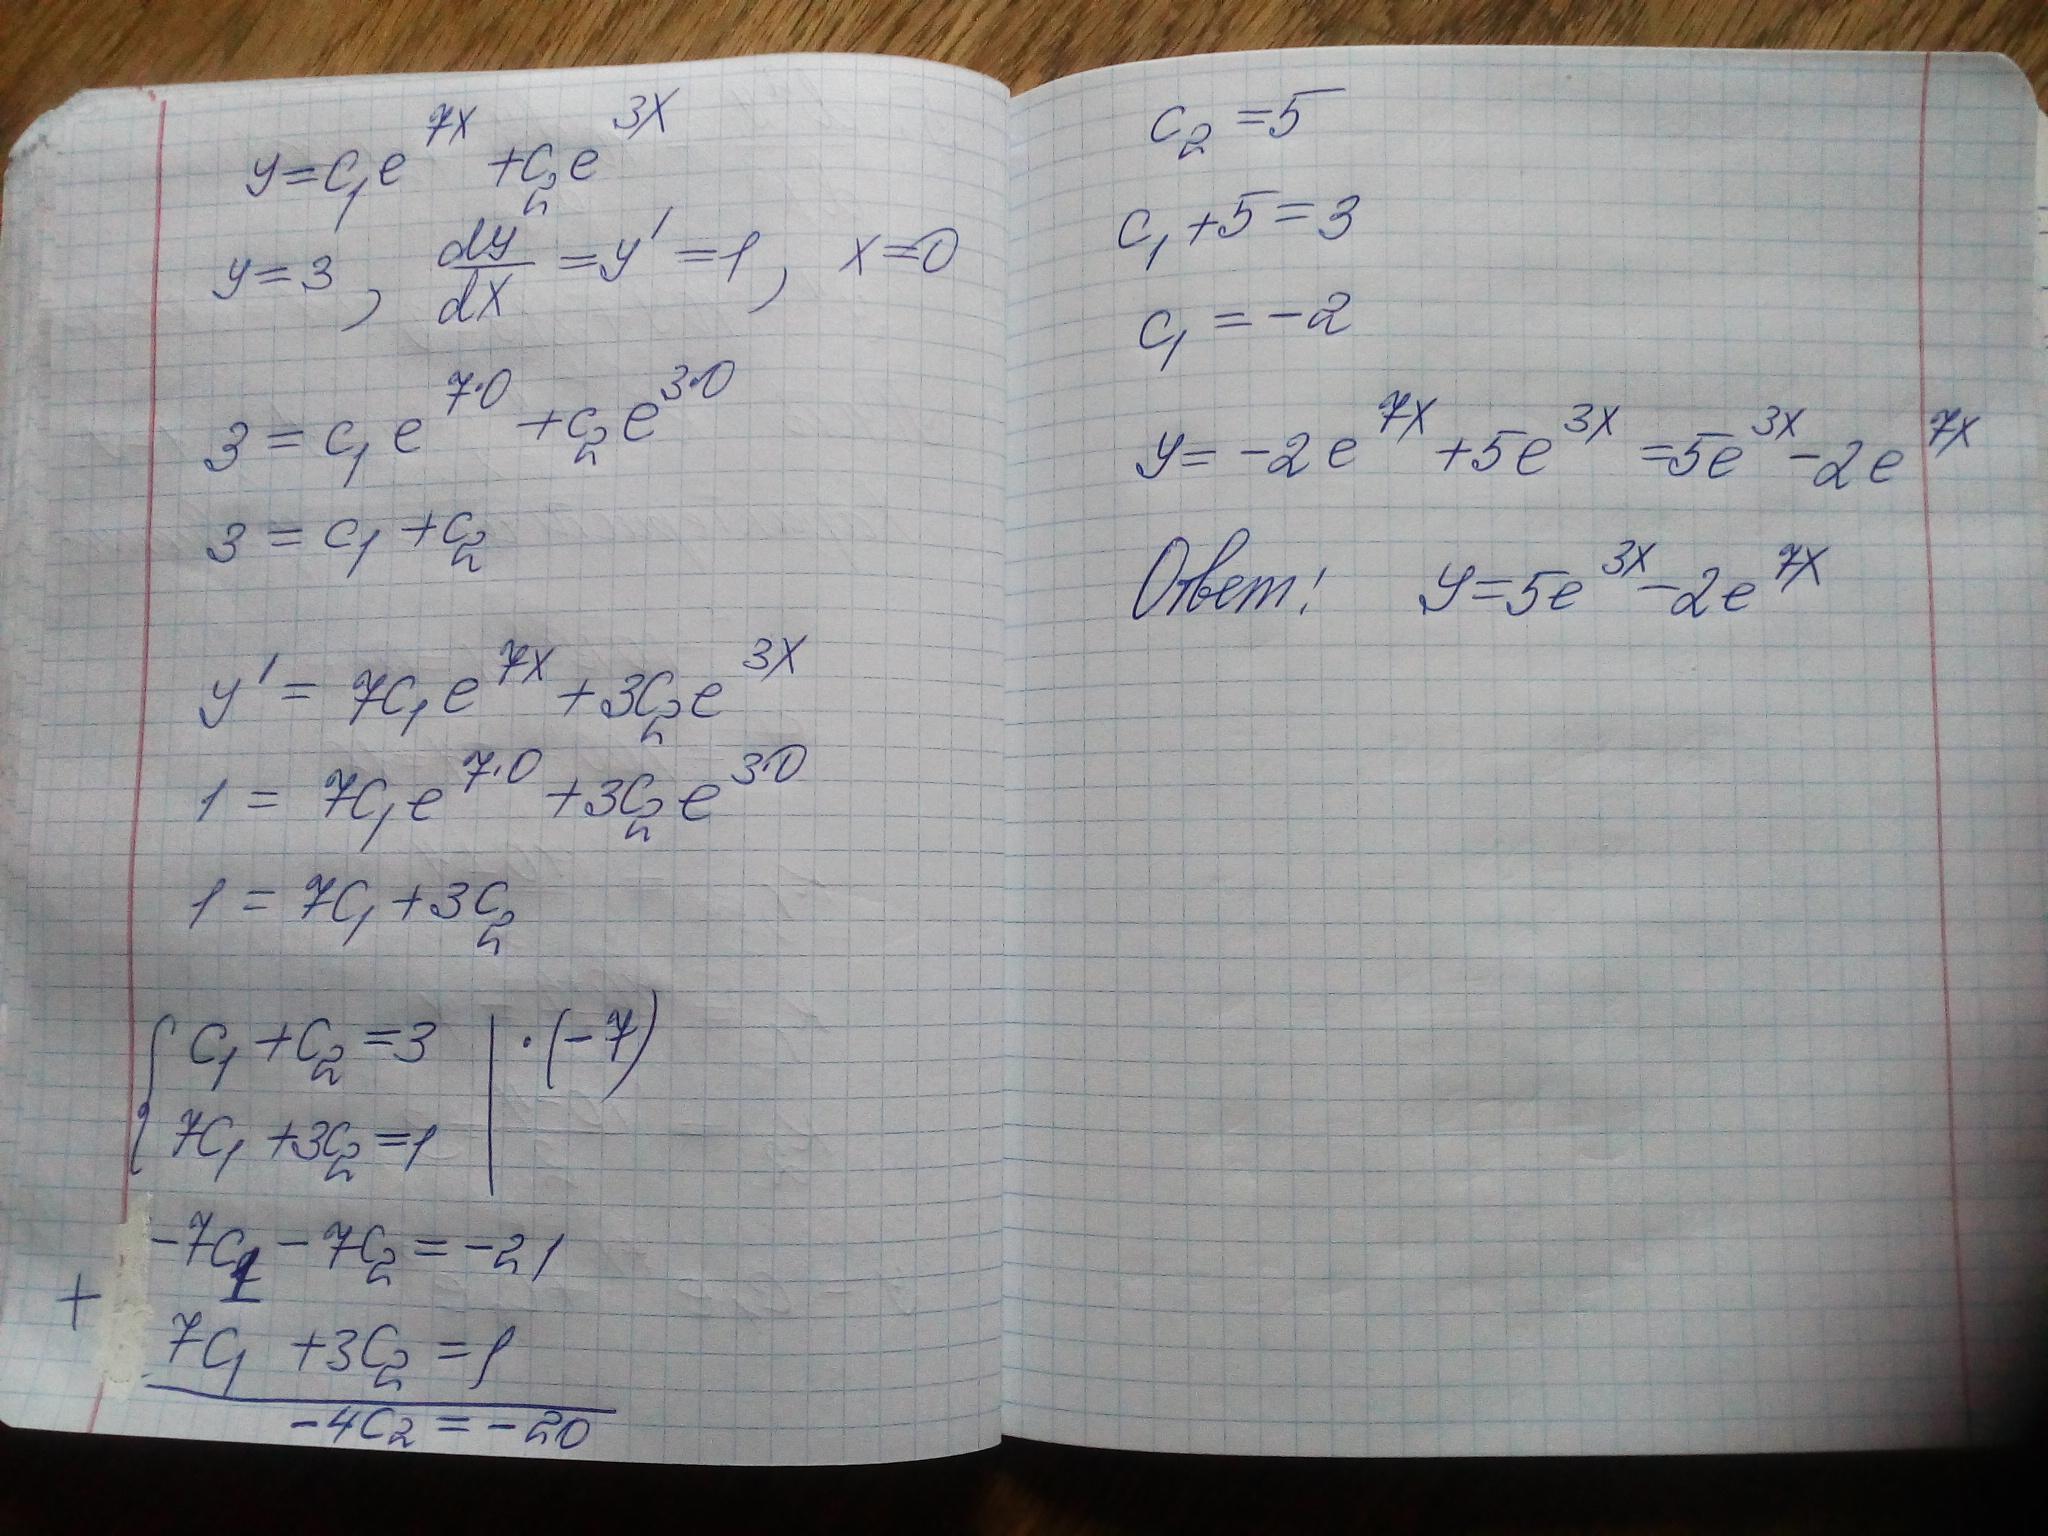 y = c₁e^{7x} + c₂e^{3x}
y = 3, dy/dx = y' = 1, x = 0
3 = c₁e^{7·0} + c₂e^{3·0}
3 = c₁ + c₂
y' = 7c₁e^{7x} + 3c₂e^{3x}
1 = 7c₁e^{7·0} + 3c₂e^{3·0}
1 = 7c₁ + 3c₂
{ c₁ + c₂ = 3 | ·(-7)
7c₁ + 3c₂ = 1
-7c₁ - 7c₂ = -21
+
7c₁ + 3c₂ = 1
-4c₂ = -20
c₂ = 5
c₁ + 5 = 3
c₁ = -2
y = -2e^{7x} + 5e^{3x} = 5e^{3x} - 2e^{7x}
Ответ: y = 5e^{3x} - 2e^{7x}